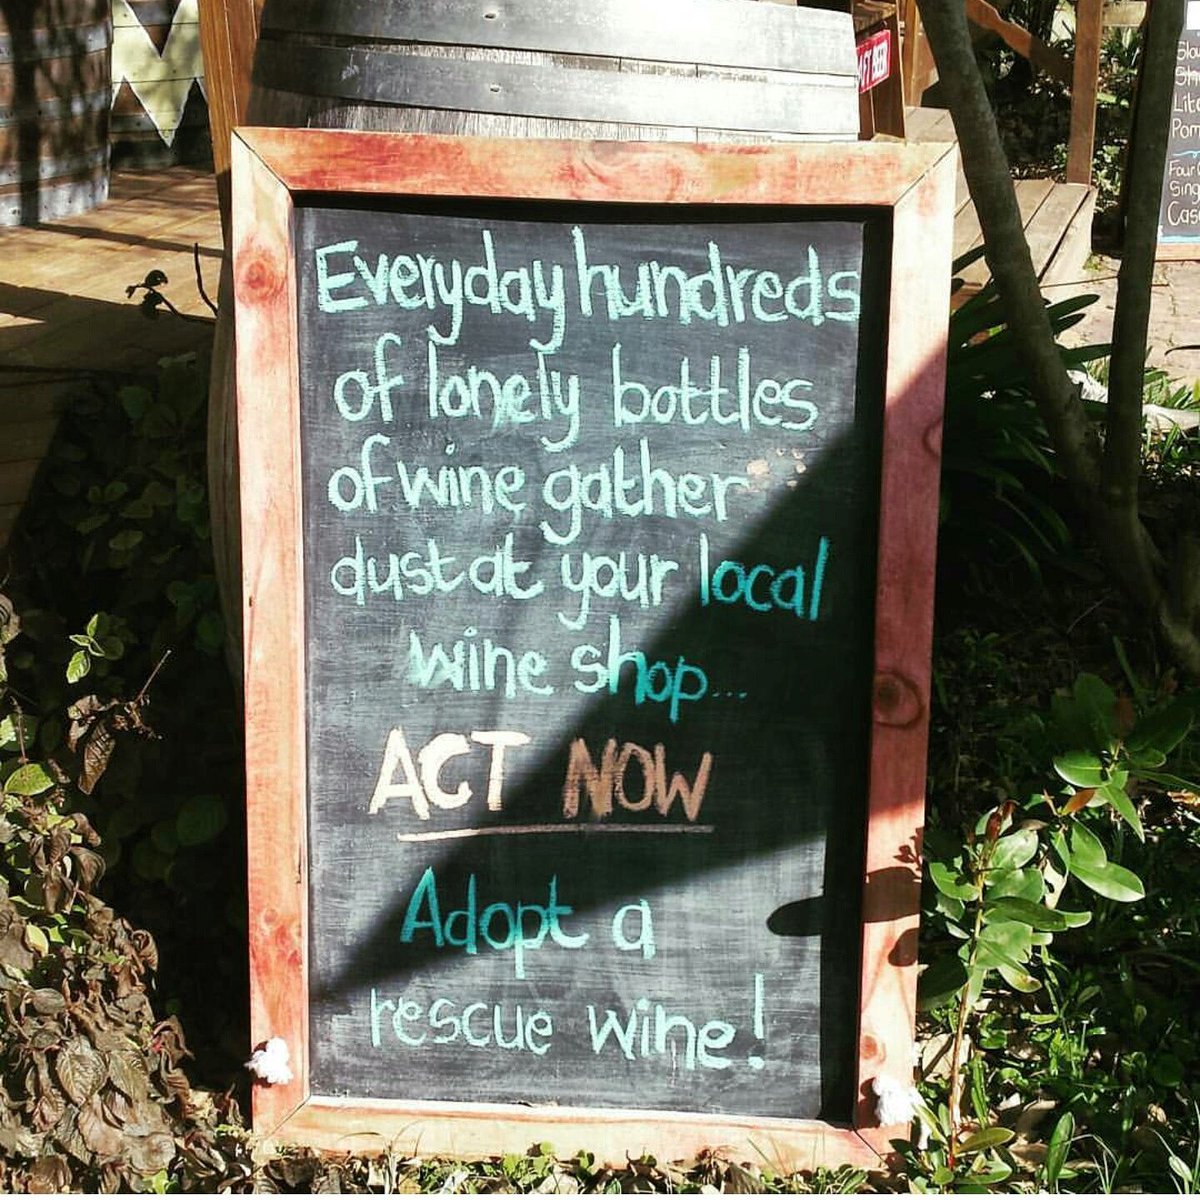 Everyday hundreds
of lonely bottles
of wine gather
dust at your local
wine shop...
ACT NOW
Adopt a
rescue wine!
BEER